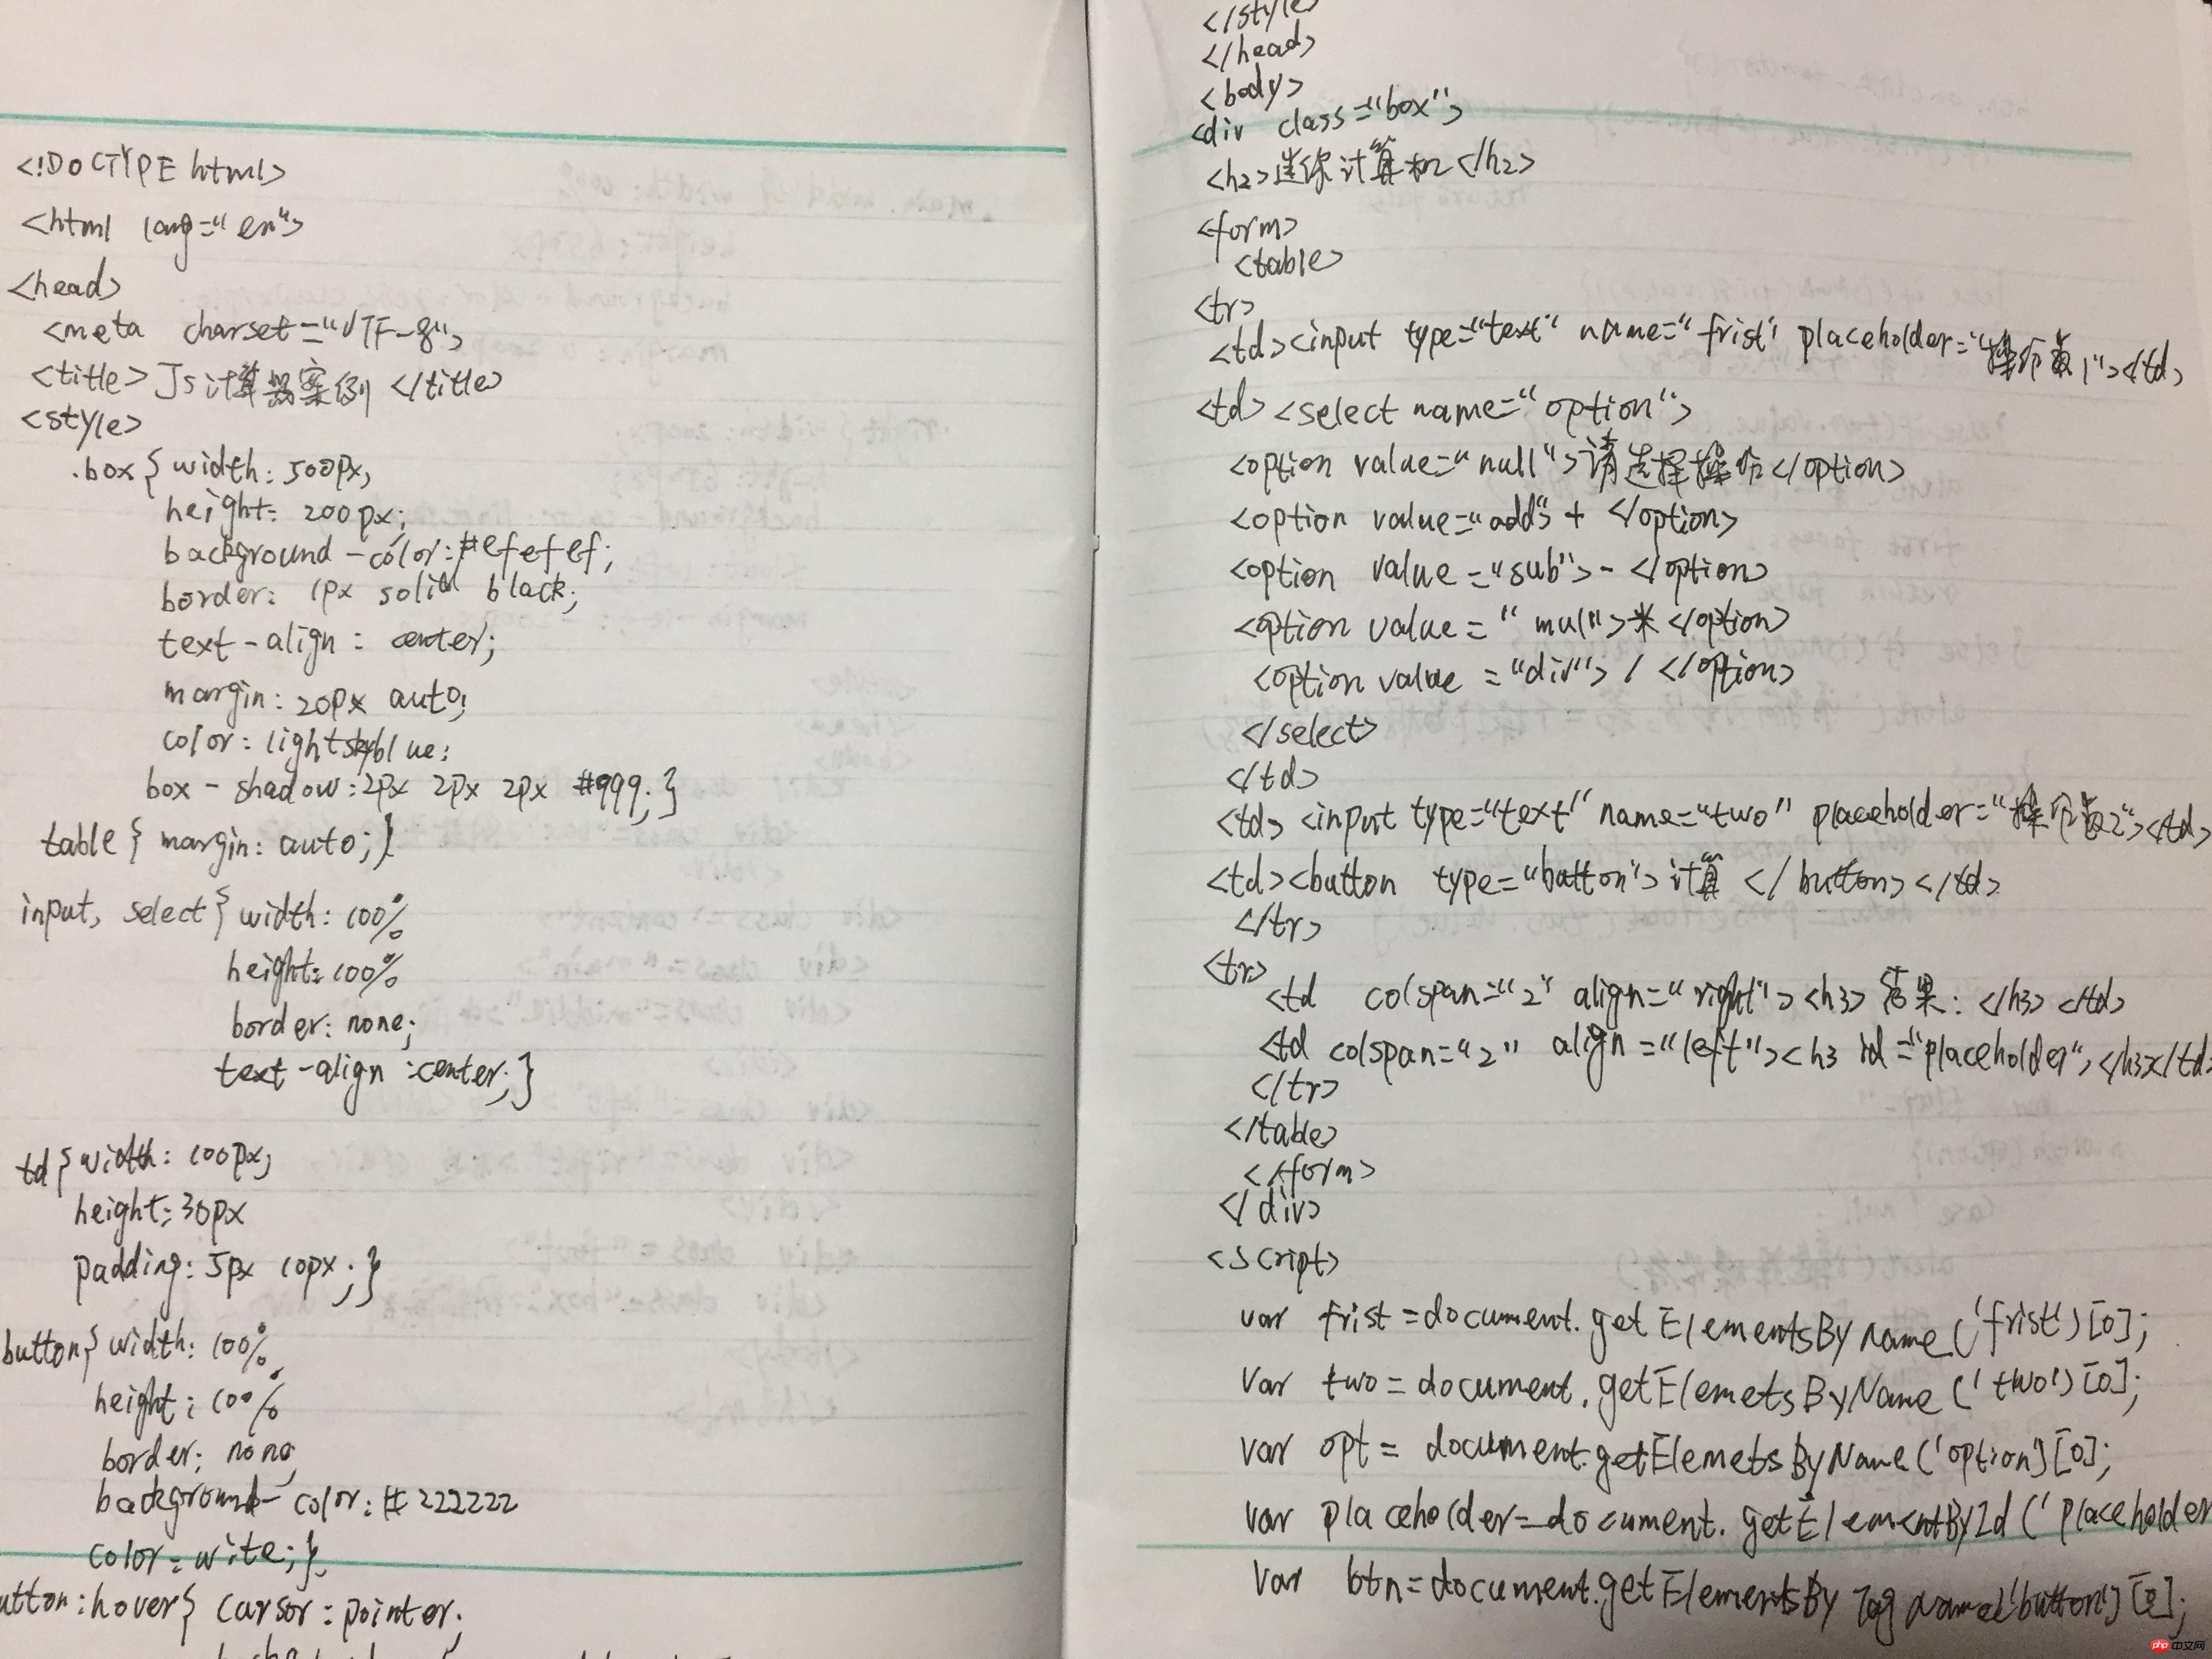 <!DOCTYPE html>
<html lang="en">
<head>
<meta charset="UTF-8">
<title>Js计算器案例</title>
<style>
.box{width:500px;
height:200px;
background-color:#efefef;
border:1px solid black;
text-align:center;
margin:20px auto;
color:lightskyblue;
box-shadow:2px 2px 2px #999;}
table{margin:auto;}
input,select{width:100%
height:100%
border:none;
text-align:center;}
td{width:100px;
height:30px
padding:5px 10px;}
button{width:100%
height:100%
border:none;
background-color:#222222
color:write;}
utton:hover{cursor:pointer;
</style>
</head>
<body>
<div class="box">
<h2>迷你计算机</h2>
<form>
<table>
<tr>
<td><input type="text" name="frist" placeholder="操作数1"></td>
<td><select name="option">
<option value="null">请选择操作</option>
<option value="add">+</option>
<option value="sub">-</option>
<option value="mul">*</option>
<option value="div">/</option>
</select>
</td>
<td><input type="text" name="two" placeholder="操作数2"></td>
<td><button type="button">计算</button></td>
</tr>
<tr>
<td colspan="2" align="right"><h3>结果:</h3></td>
<td colspan="2" align="left"><h3 id="placeholder"></h3></td>
</tr>
</table>
</form>
</div>
<script>
var frist=document.getElementsByName('frist')[0];
var two=document.getElemetsByName('two')[0];
var opt=document.getElemetsByName('option')[0];
var placeholder=document.getElementById('placeholder
var btn=document.getElementsByTagName('button')[0];
php中文网